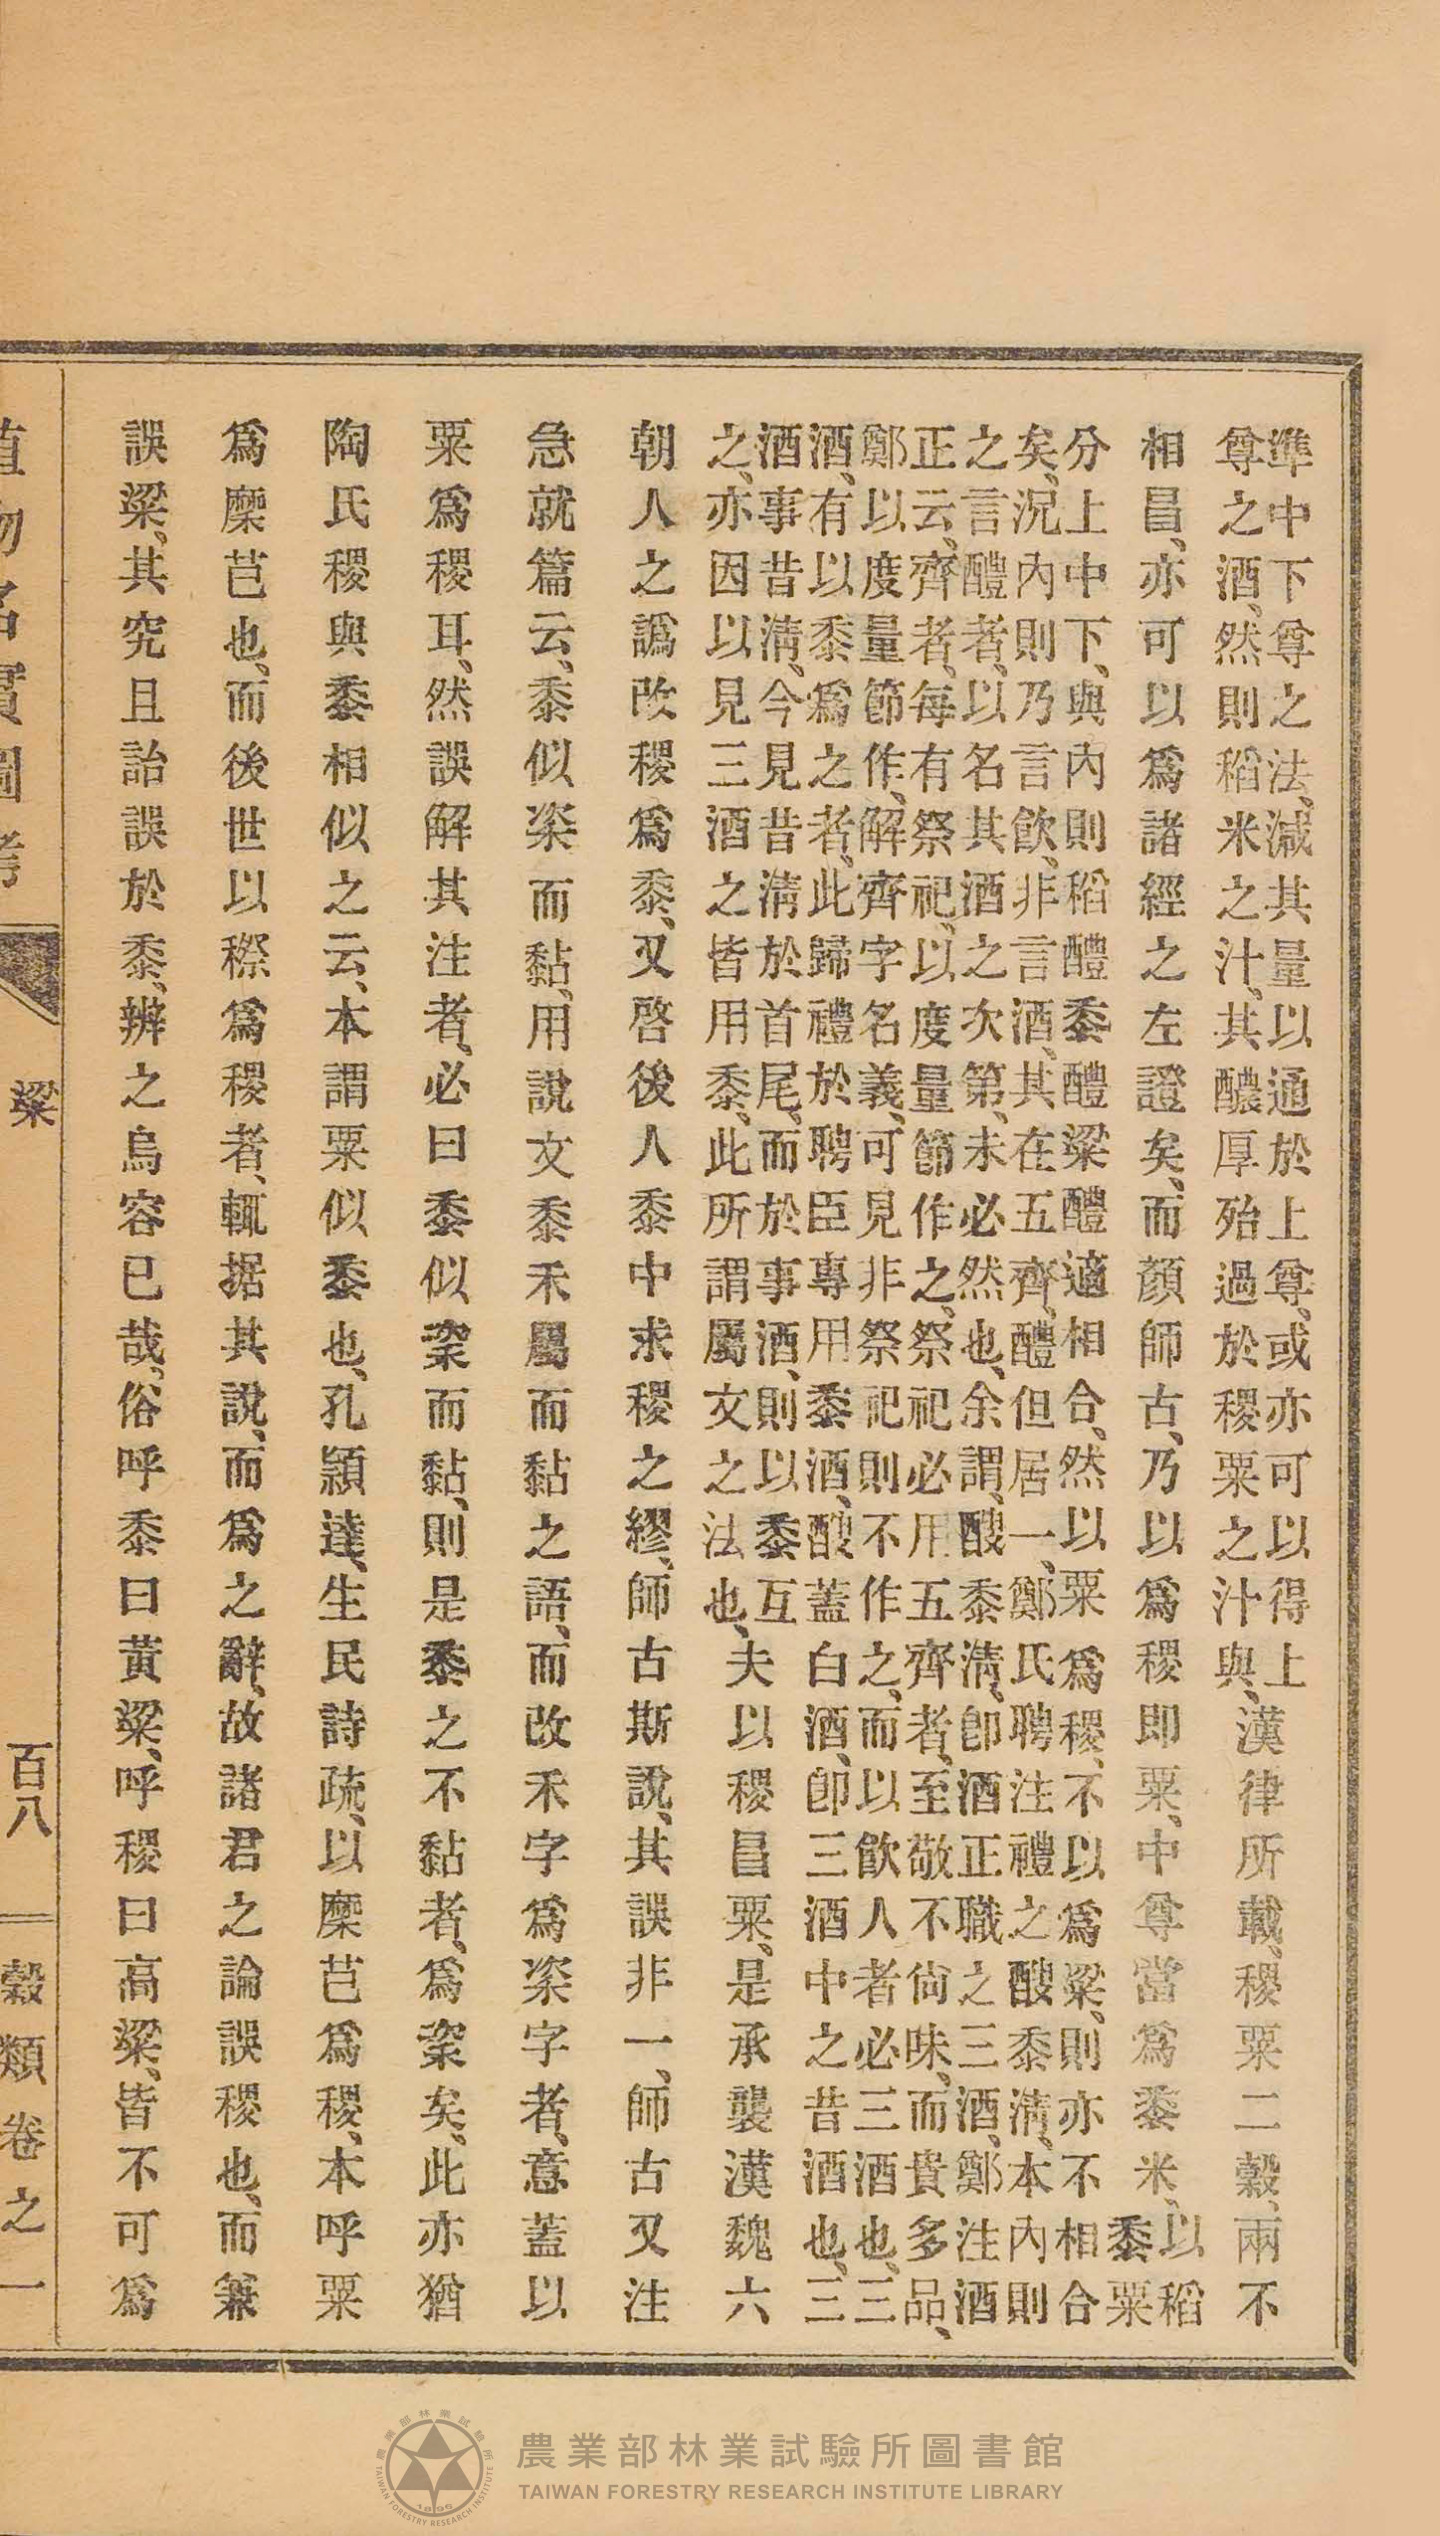 準中下尊之法、減其量以通於上尊、或亦可以得上
尊之酒、然則稻米之汁、其醲厚殆過於稷粟之汁與、漢律所載、稷粟二穀、兩不
相昌、亦可以爲諸經之左證矣、而顏師古、乃以爲稷即粟、中尊當爲黍米、以稻
黍粟
分上中下、與內則稻醴黍醴粱醴適相合、然以粟爲稷、不以爲粱、則亦不相合
矣、況內則乃言飲、非言酒、其在五齊、醴但居一、鄭氏聘注禮之醙黍淸、本內則
之言醴者、以名其酒之次第、未必然也、余謂、醙黍淸、卽酒正職之三酒、鄭注酒
正云、齊者、每有祭祀、以度量節作之、祭祀必用五齊者、至敬不尙味、而貴多品、
鄭以度量節作、解齊字名義、可見非祭祀則不作之、而以飮人者必三酒也、三
酒、有以黍爲之者、此歸禮於聘臣專用黍酒、醙蓋白酒、卽三酒中之昔酒也、三
酒事昔淸、今見昔淸於首尾、而於事酒、則以黍互
之、亦因以見三酒之皆用黍、此所謂屬文之法也、夫以稷昌粟、是承襲漢魏六
朝人之譌改稷爲黍、又啓後人黍中求稷之繆、師古斯說、其誤非一、師古又注
急就篇云、黍似粢而黏、用說文黍禾屬而黏之語、而改禾字爲粢字者、意蓋以
粟爲稷耳、然誤解其注者、必曰黍似粢而黏、則是黍之不黏者、爲粢矣、此亦猶
陶氏稷與黍相似之云、本謂粟似黍也、孔穎達、生民詩疏、以穈芑爲稷、本呼粟
爲穈芑也、而後世以穄爲稷者、輒据其說、而爲之辭、故諸君之論誤稷也、而兼
誤粱、其究且詒誤於黍、辨之烏容已哉、俗呼黍曰黃粱、呼稷曰高粱、皆不可爲
植物名實圖考　粱　百八　穀類卷之一
農業部林業試驗所圖書館
TAIWAN FORESTRY RESEARCH INSTITUTE LIBRARY